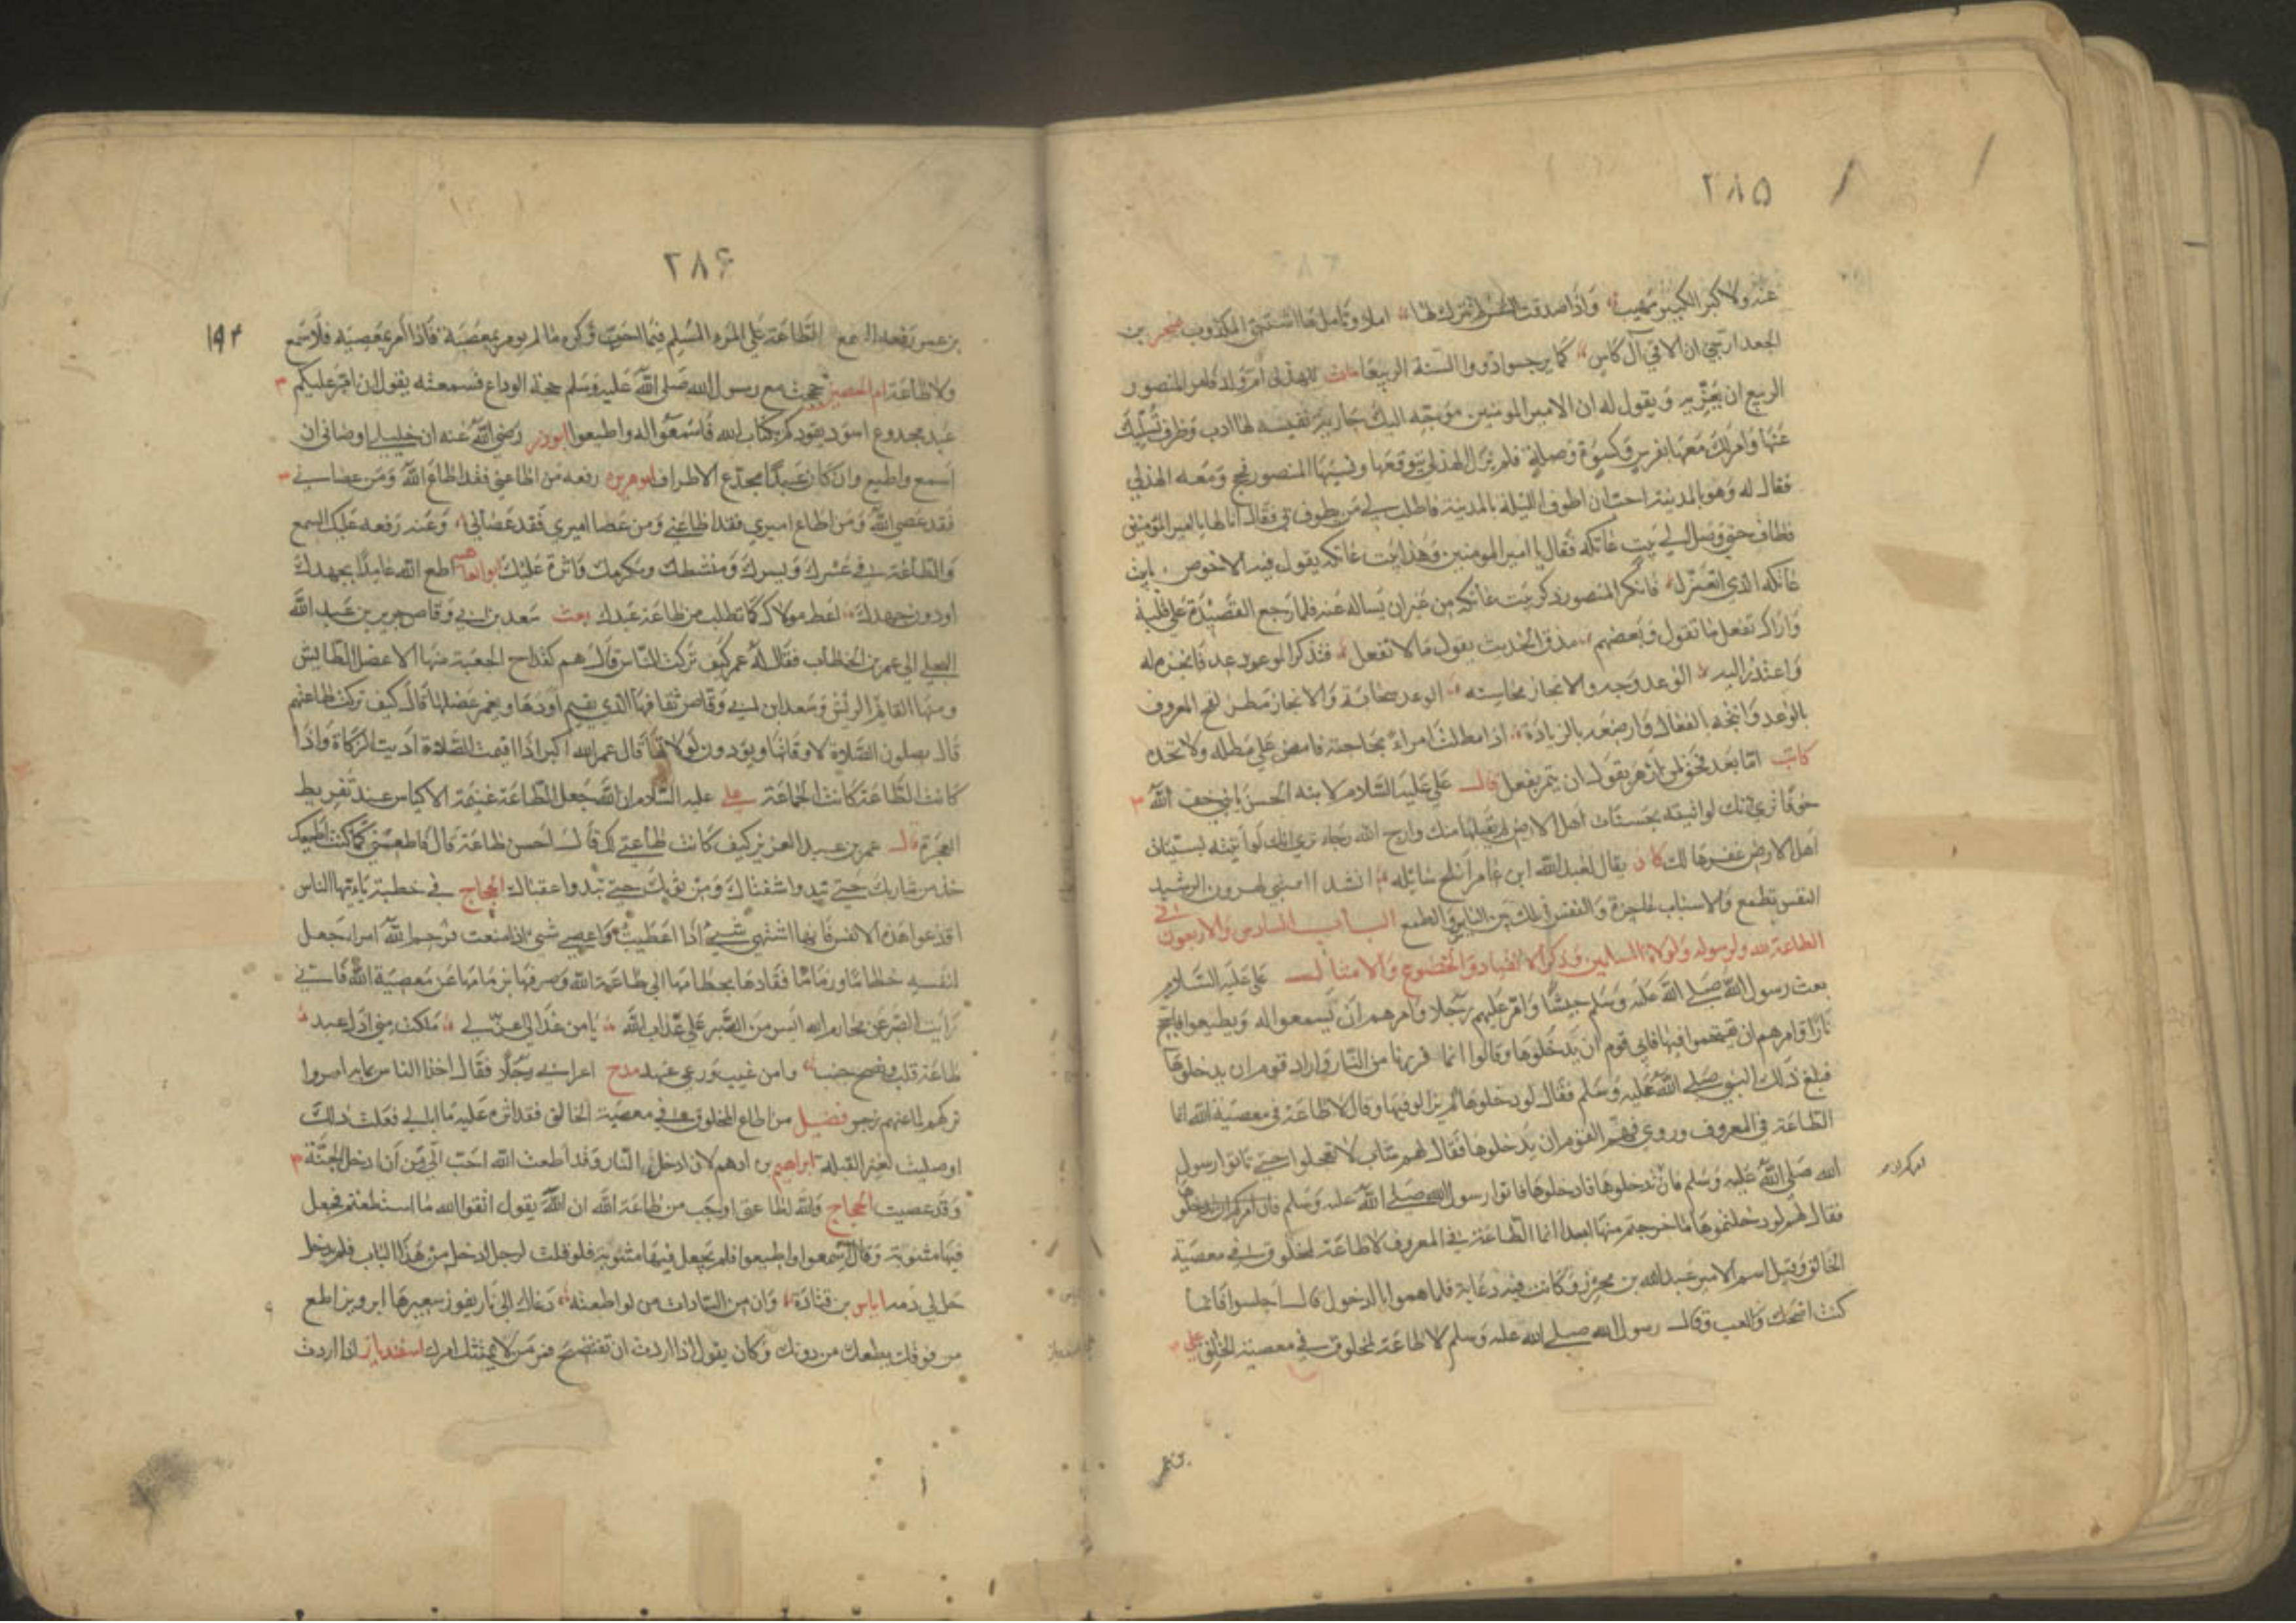 ٢٨٥
عنه ولا كبر الكبير مهيب وإذا صدقت النفس لم تترك لها أملا ويأمل ما اشتهى المكذوب صخر بن
الجعد ارتجي ان الاقي آل كاس كما يرجو اذو والسنة الربيعا مات للهذلي أم ولد فامر المنصور
الربيع ان يعزيه ويقول له ان الامير المومنين موجه اليك جارية نفيسة لها ادب وظرف تسليك
عنها وأمر لك معها بفرس وكسوة وصلة فلم يزل الهذلي يتوقعها ونسيها المنصور فحج ومعه الهذلي
فقال له وهو بالمدينة احب ان اطوف الليلة بالمدينة فاطلب لي من يطوف بي فقال انا لها يا امير المؤمنين
فطاف حتى وصل الي بيت عاتكة فقال يا امير المومنين وهذا بيت عاتكة يقول فيه الاخوص يا بيت
عاتكة الذي اتعزل فانكر المنصور ذكر بيت عاتكه من غير ان يساله عنه فلما رجع القصيدة على قلبه
واراك تفعل ما تقول وبعضهم مذق الحديث يقول ما لا تفعل فتذكر الموعود عد فانجزه له
واعتذر اليه الوعد وجه والانجاز محاسنه الوعد سحابة والانجاز مطر لقح المعروف
بالوعد وانتجه بالفعال وارضعه بالزيادة اذا مطلت امراء بحاجته فامض على مطله ولا تجد
كاتب اما بعد فحق لمن ازهر بقول ان يثمر بفعل قال علي عليه السلام لابنه الحسن يا بني خف الله
خوفا ترى انك لو اتيته بحسنات اهل الارض لم يقبلها منك وارج الله رجاء ترى انك لو أتيته بسيئات
اهل الارض غفرها لك كان يقال لعبد الله ابن عامر أنشد الرشيد
النفس تطمع والاسباب عاجزة والنفس تهلك بين الياس والطمع الباب السادس والاربعون في
الطاعة لله ولرسوله ولولاة المسلمين وذكر الانقياد والخضوع والامتثال علي عليه السلام
بعث رسول الله صلى الله عليه وسلم جيشا وامر عليهم رجلا وامرهم أن يسمعوا له ويطيعوا فاجج
نارا وامرهم ان يقتحموا فيها فابى قوم أن يدخلوها وقالوا انما فررنا من النار واراد قوم ان يدخلوها
فبلغ ذلك النبي صلى الله عليه وسلم فقال لو دخلوها لم يزالوا فيها وقال لا طاعة في معصية الله انما
الطاعة في المعروف وروي فهمّ القوم ان يدخلوها فقال لهم شاب لا تعجلوا حتى تاتوا رسول
الله صلى الله عليه وسلم فان ندخلوها فادخلوها فاتوا رسول الله صلى الله عليه وسلم فان امركم ان تدخلوها
فقال لهم لو دخلتموها لما خرجتم منها ابدا انما الطاعة في المعروف لا طاعة لمخلوق في معصية
الخالق وقيل اسم الامير عبد الله بن محرز وكانت فيه دعابة فلما هموا بالدخول قال اجلسوا فانما
كنت اضحك والعب وقال رسول الله صلى الله عليه وسلم لا طاعة لمخلوق في معصية الخالق علي
٢٨۶
١٩٣
بن عمر رفعه السمع والطاعة على المرء المسلم فيما احب وكره ما لم يومر بمعصية فاذا أمر بمعصية فلا سمع
ولا طاعة ام الحصين حججت مع رسول الله صلى الله عليه وسلم حجة الوداع فسمعته يقول ان امر عليكم
عبد مجدوع اسود يقودكم بكتاب الله فاسمعوا له واطيعوا ابوذر رضي الله عنه ان خليلي اوصاني ان
اسمع واطيع وان كان عبدا مجدع الاطراف ابو هريرة رفعه من اطاعني فقد اطاع الله ومن عصاني
فقد عصي الله ومن اطاع اميري فقد اطاعني ومن عصا اميري فقد عصاني وعنه رفعه عليك السمع
والطاعة في عسرك ويسرك ومنشطك ومكرهك واثرة عليك اطع الله عامدا بجهدك
او دون جهدك اعط مولاك كما تطلب من طاعة عبدك بعث سعد بن ابي وقاص جرير بن عبد الله
البجلي الي عمر بن الخطاب فقال له عمر كيف تركت الناس قال هم كقداح الجعبة منها الاعضل الطايش
ومنها القايم الرايش وسعد ابن ابي وقاص ثقافها الذي يقيم اودها ويغمز عضلها قال كيف تركت طاعتهم
قال يصلون الصلاة لاوقاتها ويؤدون لولاتها قال عمر الله اكبر اذا اقيمت الصلاة أديت الزكاة واذا
كانت الطاعة كانت الجماعة علي عليه السلام ان الله جعل الطاعة غنيمة الاكياس عند تفريط
العجزة قال عمر بن عبد العزيز كيف كانت طاعتي لك قال احسن طاعة قال فاطعني كما كنت اطيعك
خذ من شاربك حتى تبدوا شفتاك ومن ثوبك حتى تبدوا عقباك الحجاج في خطبة يا ايها الناس
اقدعوا هذه الانفس فانها اشهى شيئ اذا اعطيت واعصى شيئ اذا منعت فرحم الله امرا جعل
لنفسه خطاما وزماما فقادها بخطامها الى طاعة الله وصرفها بزمامها عن معصية الله فانني
رأيت الصبر عن محارم الله ايسر من الصبر على عذاب الله
طاعة قلب ونصح مدح اعرابي رجلا فقال
فضيل من اطاع المخلوق في معصية الخالق فقد اثره عليه ما ابالي فعلت ذلك
او صليت لغير القبلة ابراهيم بن ادهم لان ادخل النار وقد اطعت الله احب الي من أن ادخل الجنة
وقد عصيت الحجاج والله لطاعتي اوجب من طاعة الله ان الله يقول اتقوا الله ما استطعتم فجعل
فيها مثنوية وقال اسمعوا واطيعوا فلم يجعل فيها مثنوية فلو قلت لرجل ادخل من هذا الباب فلم يدخل
حل لي دمه اياس بن قتادة وان من السادات من لو اطعته دعاك الى نار يفوز سعيرها ابرويز اطع
من فوقك يطعك من دونك وكان يقول اذا اردت ان تفتضح فمر من لا يمتثل امرك اسفنديار اذا اردت